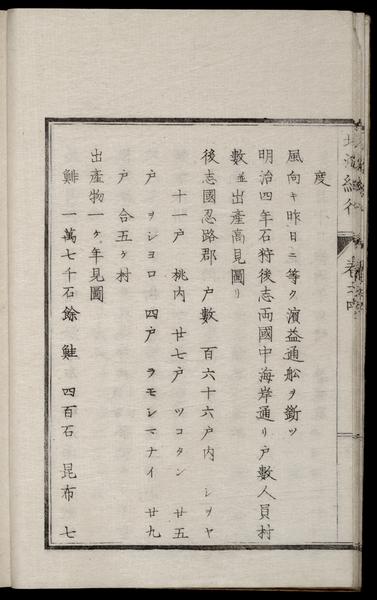 度
風向キ昨日ニ等ク濱益通舩ヲ斷ツ
明治四年石狩後志両國中海岸通リ戸數人員村
數並出産高見圖リ
後志國忍路郡 戸數 百六十六戸内 シヲヤ
十一戸 桃内 廿七戸 ツコタン 廿五
戸 ヲショロ 四戸 ヲモシマナイ 廿九
戸 合五ヶ村
出産物一ヶ年見圖
鯡 一萬七千石餘 鮭 四百石 昆布 七